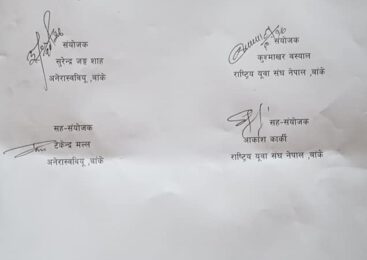 संयोजक
सुरेन्द्र जङ्ग शाह
अनेरास्ववियू ,बांके
संयोजक
कुश्माखर बस्याल
राष्ट्रिय युवा संघ नेपाल ,बांके
सह-संयोजक
टेकेन्द्र मल्ल
अनेरास्ववियू ,बांके
सह-संयोजक
आकाश कार्की
राष्ट्रिय युवा संघ नेपाल ,बांके